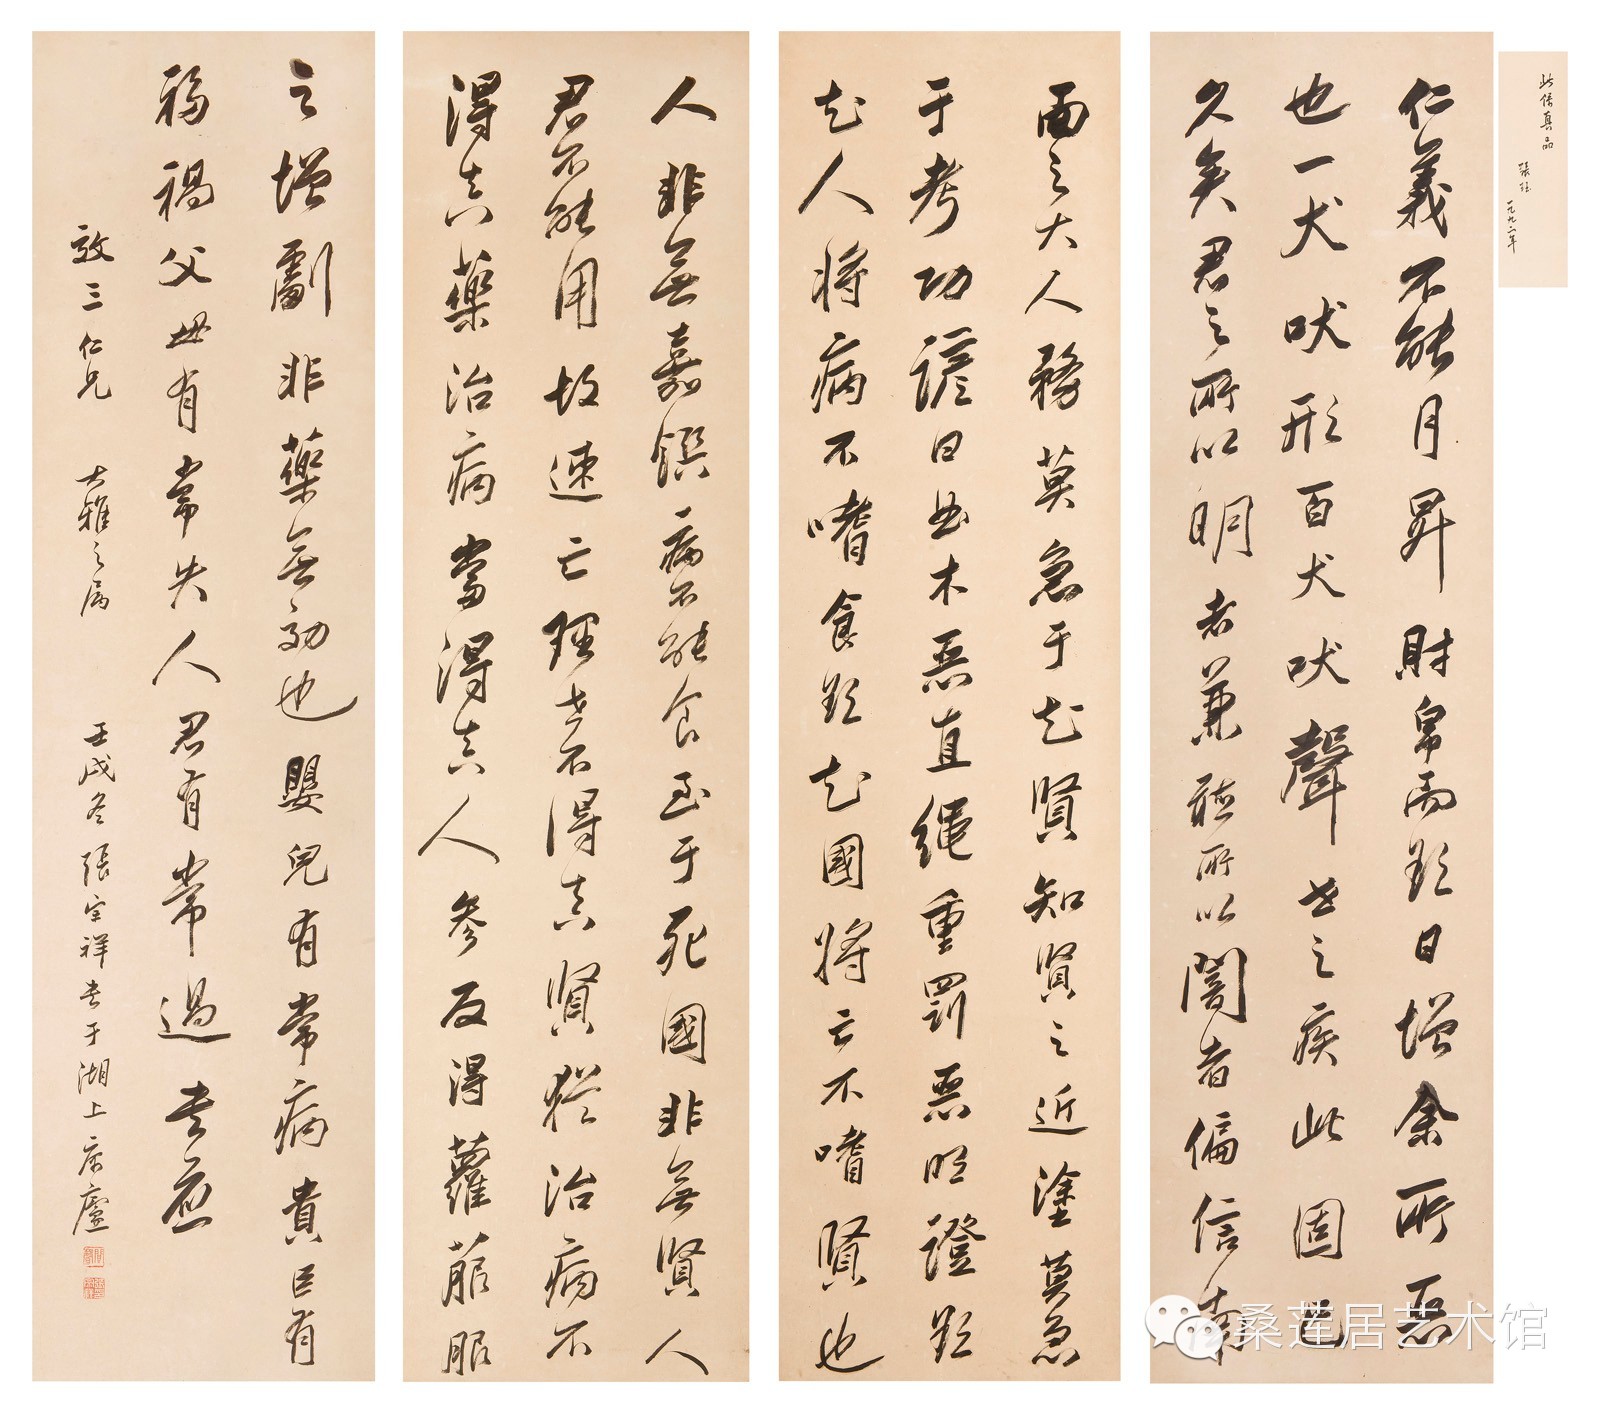 此係真品
張珏
一九九二年
仁義不能月昇財帛而欲日增余所惡
也一犬吠形百犬吠聲世之疾此固也
久矣君之所以明者兼聽所以闇者偏信
而之大人務莫急于知賢知賢之近塗莫急
于考功諺曰曲木惡直繩重罰惡明證欲
知人將病不嗜食欲知國將亡不嗜賢也
人非無嘉饌病不能食至于死國非無賢人
君不能用故速亡理世不得真賢猶治病不
得真藥治病當得真人參反得蘿菔服
之增劇非藥無効也嬰兒有常病貴臣有
福禍父母有常失人君有常過
敬三仁兄 大雅之屬 壬戌冬張宗祥書于湖上
桑莲居艺术馆